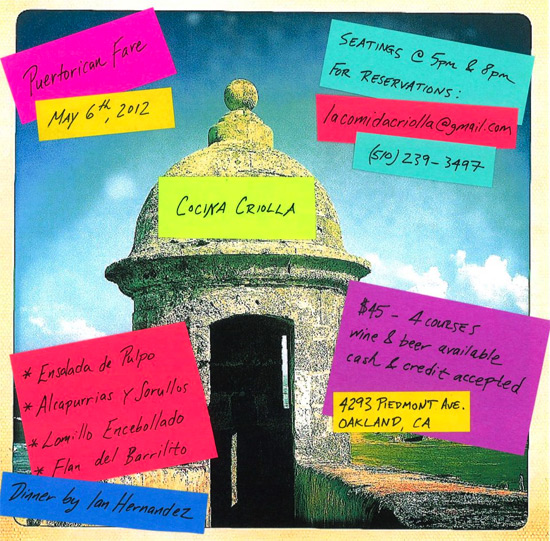 Puertorican Fare
MAY 6th, 2012
SEATINGS @ 5pm & 8pm
FOR RESERVATIONS:
lacomidacriolla@gmail.com
(510) 239-3497
COCINA CRIOLLA
* Ensalada de Pulpo
* Alcapurrias y Sorullos
* Lomillo Encebollado
* Flan del Barrilito
Dinner by Ian Hernandez
$45 - 4 COURSES
wine & beer available
cash & credit accepted
4293 PIEDMONT AVE.
OAKLAND, CA